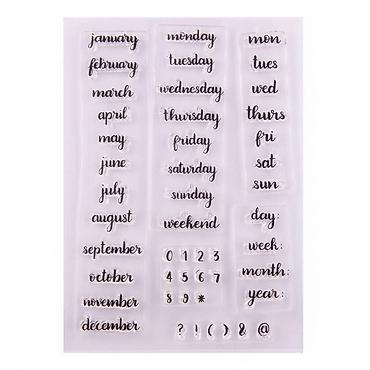 january
february
march
april
may
june
july
august
september
october
november
december
monday
tuesday
wednesday
thursday
friday
saturday
sunday
weekend
0 1 2 3
4 5 6 7
8 9 *
? ! ( ) & @
mon
tues
wed
thurs
fri
sat
sun
day:
week:
month:
year: